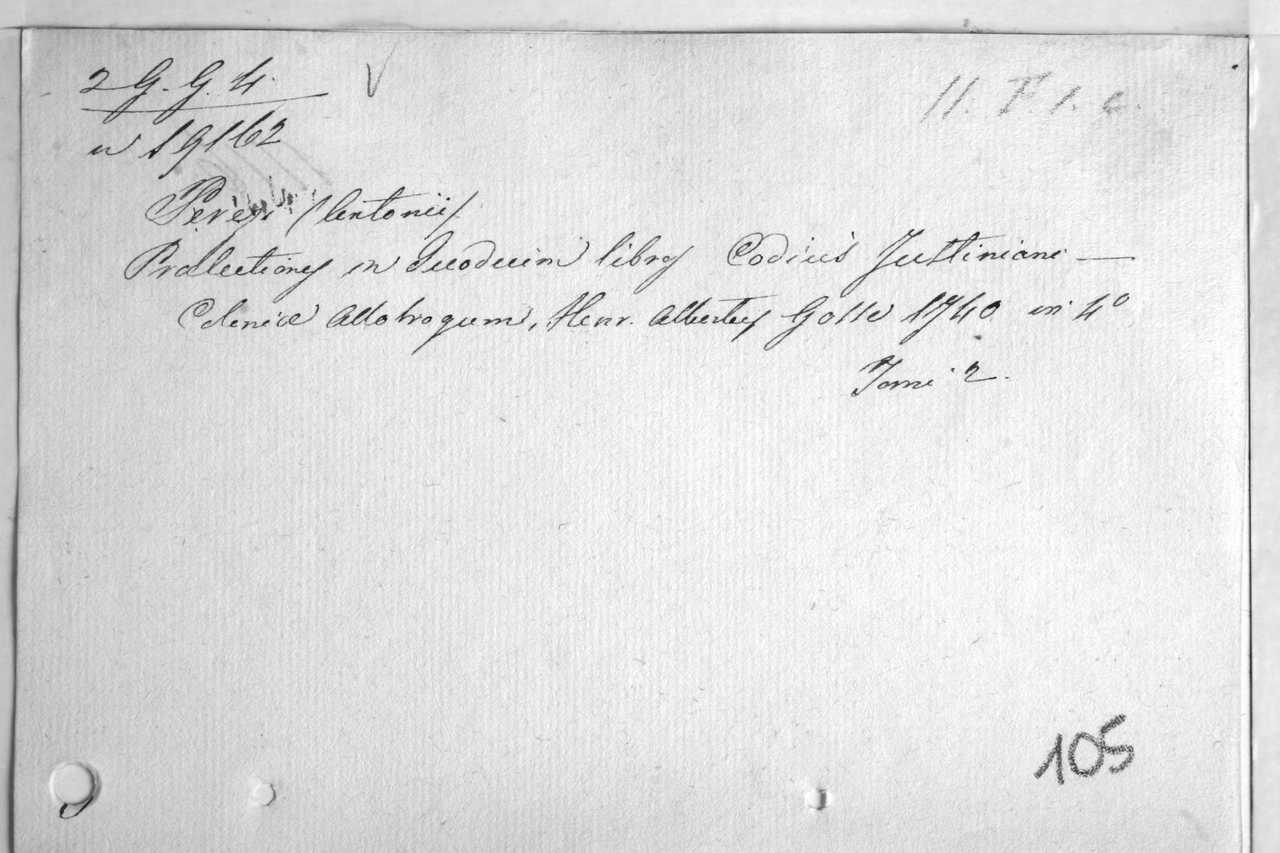 2 G. G. 4. 11. F. 1. c.
n 19162
Perezi (Antonii)
Prælectiones in Duodecim libros Codicis Justiniani —
Coloniæ Allobrogum, Henr. Albertus Gosse 1740 in 4º
Tomi 2.
105